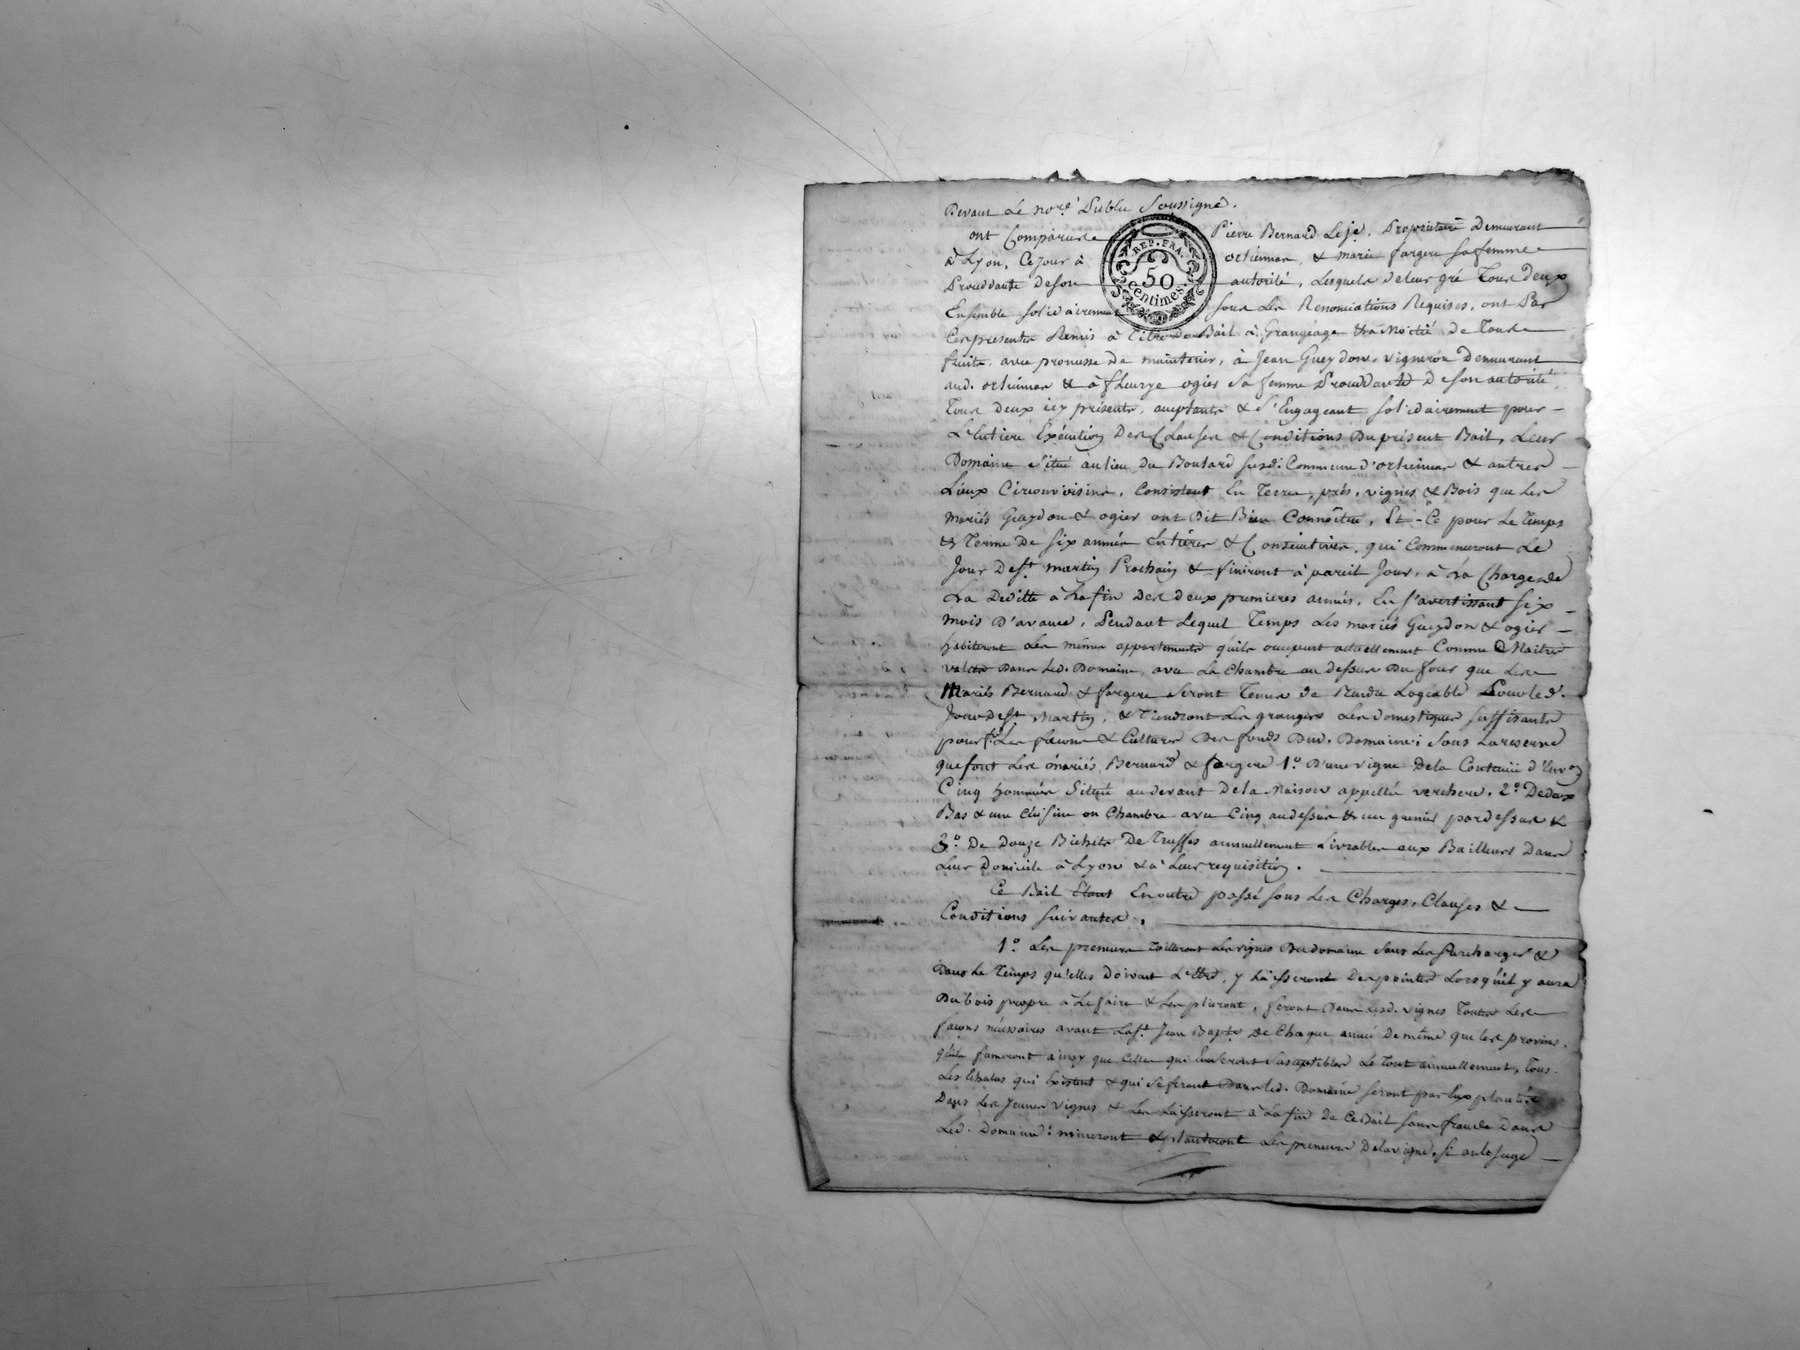 Devant Le nore. Public Soussigné.
ont Comparu Pierre Bernard Le je. Propriétaire Demeurant
à Lyon, Ce jour à orliénnas, & marie fargere sa femme
Procédante de son autorité, Lesquels de leur gré Tous deux
Ensemble solidairement sous Les Renonciations Requises, ont Par
Ces présentes Remis à Titre De Bail à Grangéage & a Moitié de Tous
fruits avec promesse de maintenir, à Jean Gueydon, vigneron Demeurant
aud. orliénnas & à fleurye ogier sa femme Procédante De son autorité,
Tous deux icy présents, acceptants & s'Engageant solidairement pour
L'Entiere Exécution Des Clauses & Conditions Du présent Bail, Leur
Domaine situé au lieu Du Boulard susd. Commune d'orliénnas & autres
Lieux Circonvoisins, Consistent En Terres, prés, vignes & Bois que Les
mariés Gueydon & ogier ont Dit Bien Connoître, Et - Ce pour Le Temps
& Terme De six années Entières & Consécutives, qui Commenceront Le
Jour De st. martin Prochain & finiront à pareil Jour, à La Charge de
La Deditte à La fin Des deux premieres années, En s'avertissant six
mois D'avance, Pendant Lequel Temps Les mariés Gueydon & ogier
habiteront Les mêmes appartements qu'ils occupent actuellement Comme Maitres
valets Dans Led. Domaine, avec La Chambre au dessus Du four que Les
Mariés Bernard & fargere seront Tenus de Rendre Logeable Pour led.
Jour De st. Martin, & Tiendront Les grangers Les domestiques suffisants
pour fe. Les façons & Cultures Des fonds Dud. Domaine; Sous La reserve
que font Les mariés Bernard & fargere 1°. D'une vigne De la Contenüe d'Envon
Cinq hommées Située au devant De la Maison appellée verchere, 2°. De deux
Bas & une Cuisine ou Chambre avec Cinq au dessus & un grenier par dessus &
3°. De Douze Bichets De Truffes annuellement Livrables aux Bailleurs Dans
Leur Domicile à Lyon & à Leur requisition.
Ce Bail Etant En outre passé sous Les Charges, Clauses &
Conditions suivantes,
1°. Les preneurs Tailleront Les vignes Du domaine sans Les surcharger &
Dans Le Temps qu'elles Doivent L'être, y Laisseront Des pointes Lorsqu'il y aura
Du bois propre à Le faire & Les plieront, feront Dans Lesd. vignes Toutes Les
façons nécessaires avant La st. Jean Bapte. De Chaque année De même que Les provins,
qu'ils fumeront ainsy que Celles qui En seront susceptibles Le Tout annuellement, Tous
Les Chalus qui Existent & qui se feront Dans Led. Domaine seront par Eux plantés
Dans Les Jeunes vignes & Les Laisseront à La fin De Ce Bail sans fraude Dans
Led. Domaine: mineront & planteront Les preneurs De la vigne, si on le juge